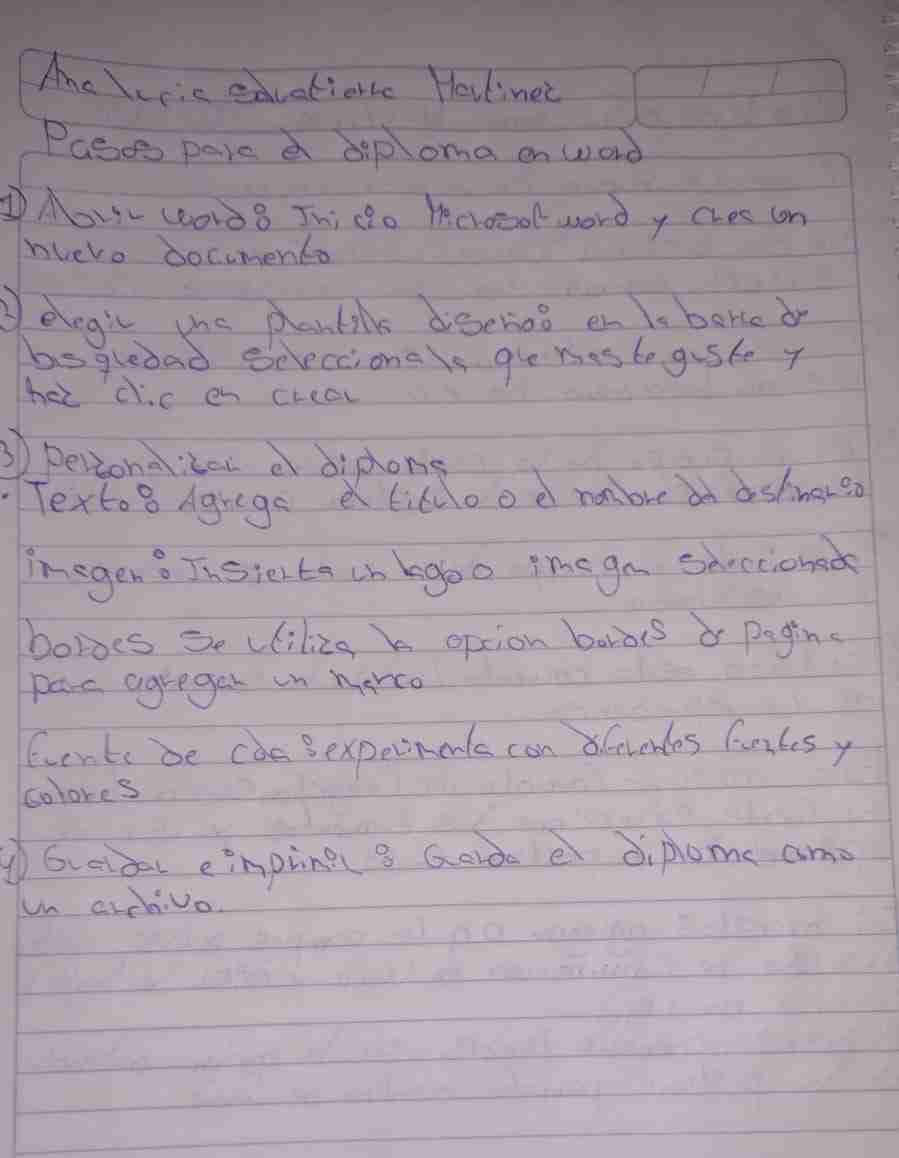 Ana Lucia Martinez
Pasos para el diploma en word
1) Abrir word: Inicio Microsoft word y crea un
nuevo documento
2) elegir una plantilla diseños en la barra de
busquedad selecciona la que mas te guste y
haz clic en crear
3) Personalizar el diploma
• Texto: Agrega el titulo o el nombre del destinario
imagen: Inserta un logo o imagen seleccionada
bordes se utiliza la opcion bordes de pagina
para agregar un marco
fuente de experimenta con diferentes fuentes y
colores
4) Guardar e imprimir: Guarda el diploma como
un archivo.